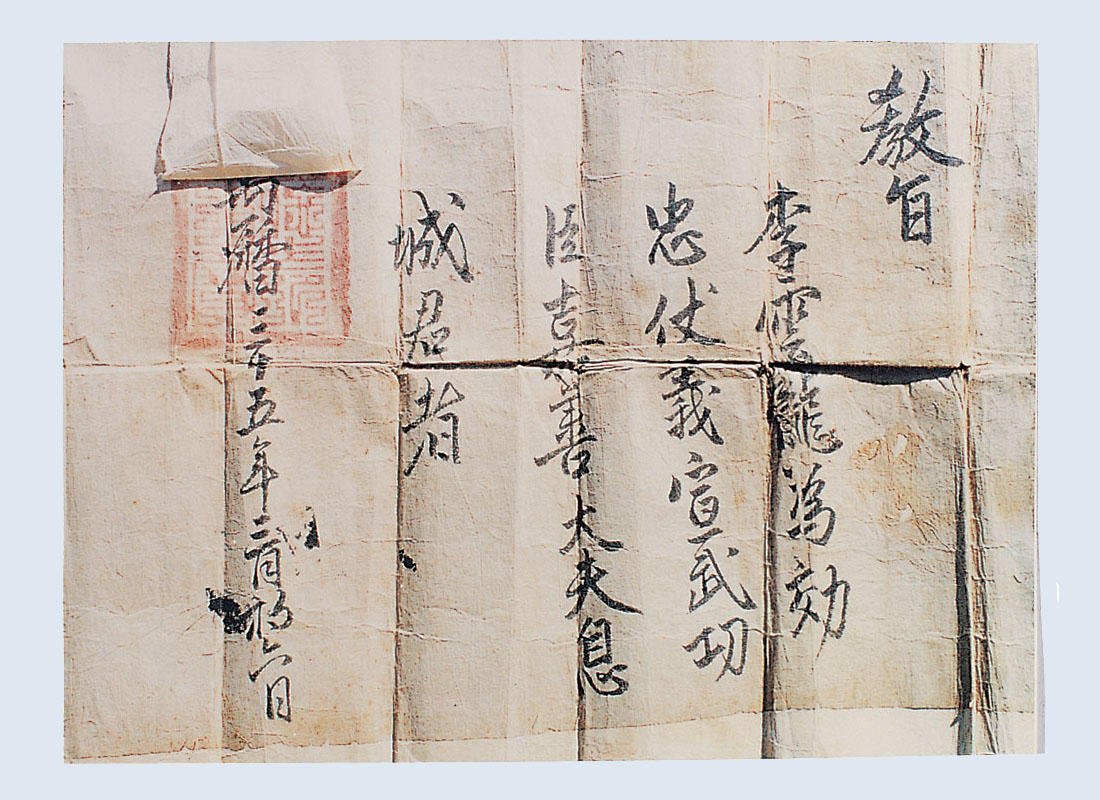 敎旨
李雲龍爲効
忠仗義宣武功
臣嘉善大夫息
城君者
萬曆三十五年三月初六日